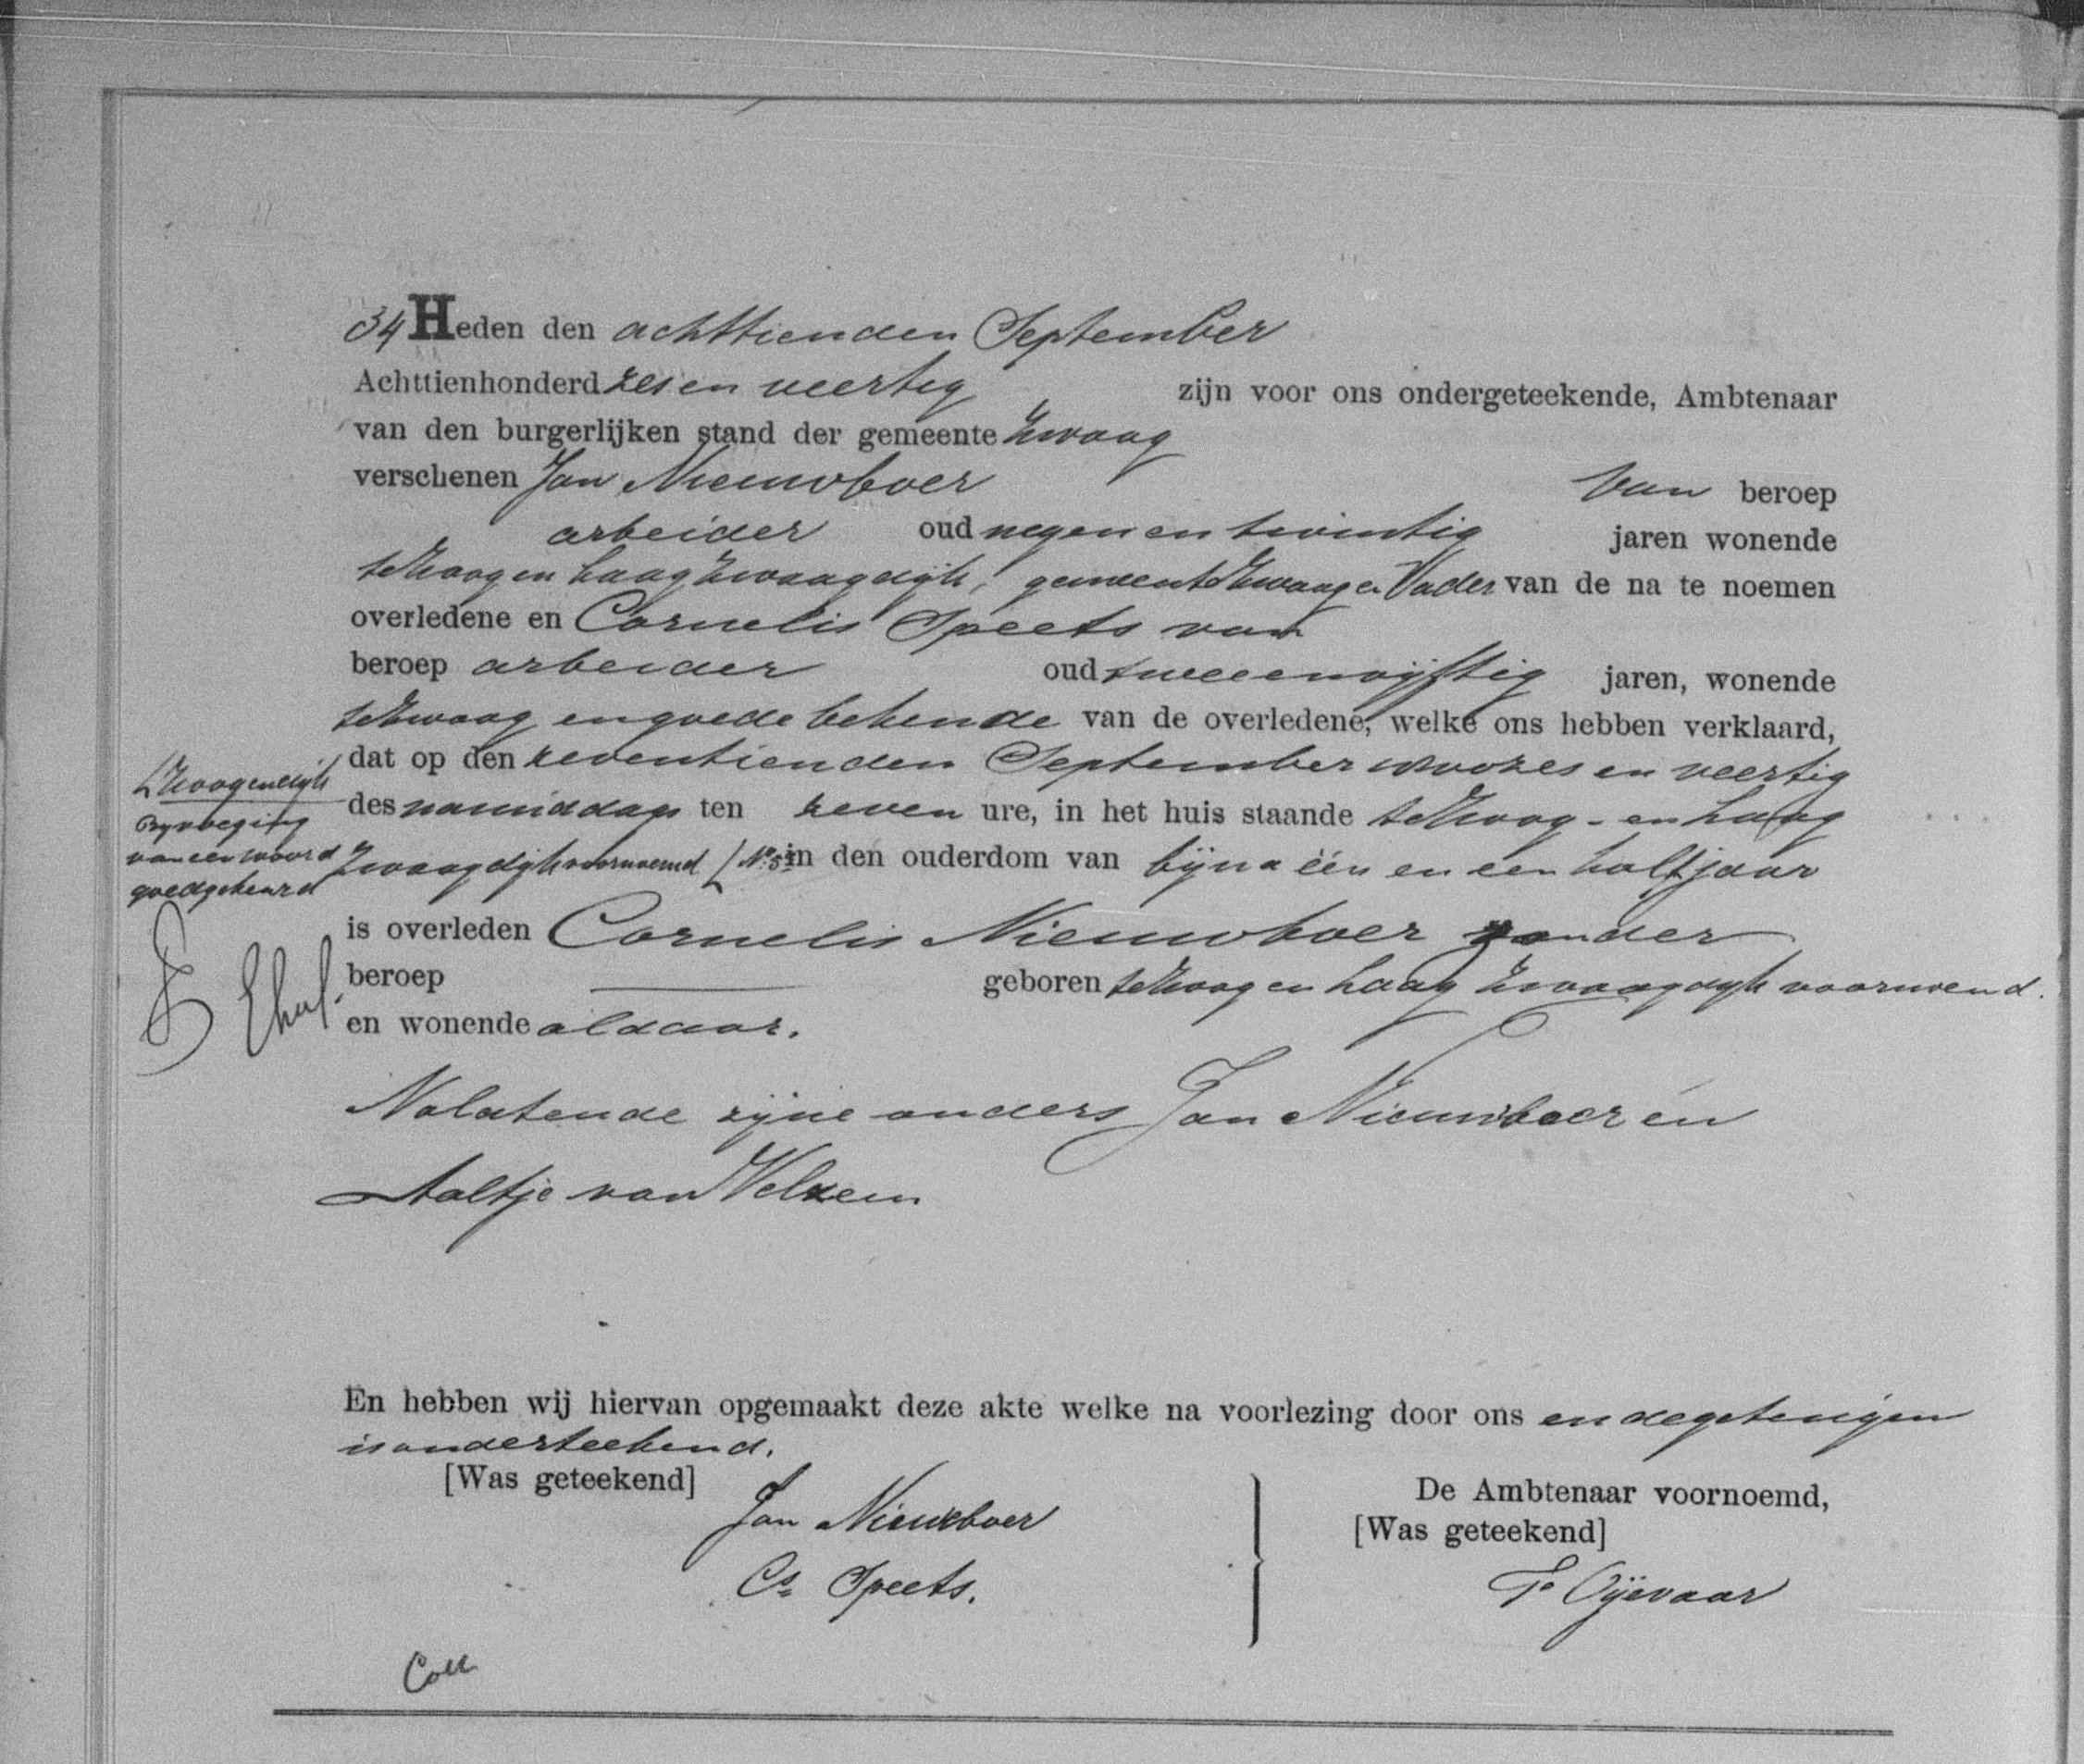 34 Heden den achttienden September
Achttienhonderd zes en veertig zijn voor ons ondergeteekende, Ambtenaar
van den burgerlijken stand der gemeente Zwaag
verschenen Jan Nieuwboer van beroep
arbeider oud negen en twintig jaren wonende
te Hoog en Laag Zwaagdijk, gemeente Zwaag en Vader van de na te noemen
overledene en Cornelis Speets van
beroep arbeider oud twee en vijftig jaren, wonende
te Zwaag en goede bekende van de overledene, welke ons hebben verklaard,
dat op den zeventienden September zes en veertig
des namiddags ten zeven ure, in het huis staande te Hoog- en Laag
Zwaagdijk voornoemd [No 5 in den ouderdom van bijna één en een half jaar
is overleden Cornelis Nieuwboer zonder
beroep — geboren te Hoog en Laag Zwaagdijk voornoemd.
en wonende aldaar.
Nalatende zijne ouders Jan Nieuwboer en
Aaltje van Velzen
Byvoeging
van een woord
goedgekeurd
En hebben wij hiervan opgemaakt deze akte welke na voorlezing door ons en de getuigen
is onderteekend.
[Was geteekend]
Jan Nieuwboer
Cs Speets.
De Ambtenaar voornoemd,
[Was geteekend]
P. Oijevaar
Coll